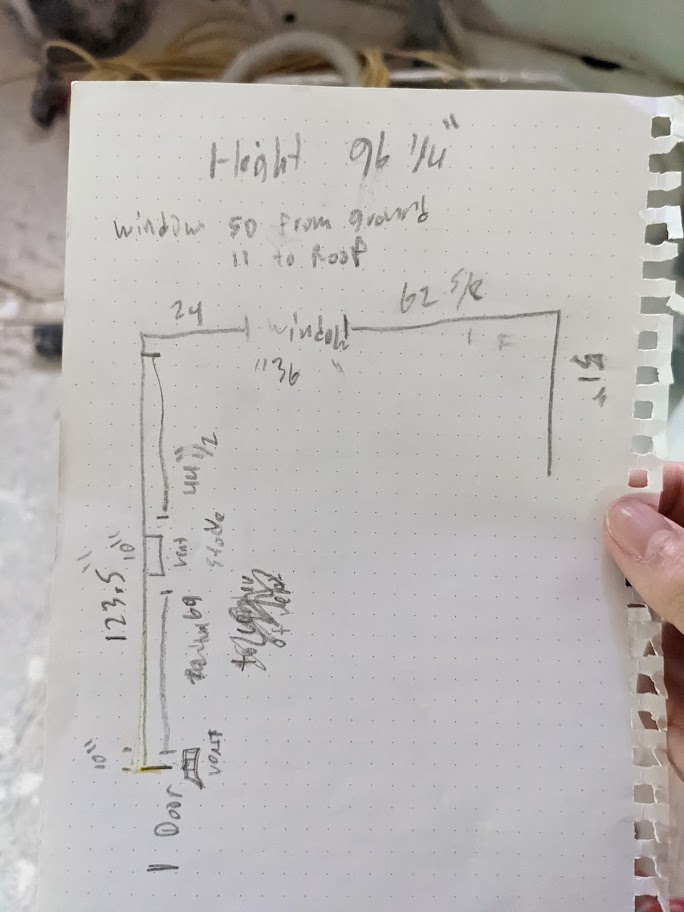 Height 96 1/4"
Window 50 from ground
11 to Roof
24
window
62 5/8
"36"
51"
44 1/2"
10"
Vent
Stove
123.5"
69
10"
Vent
Door